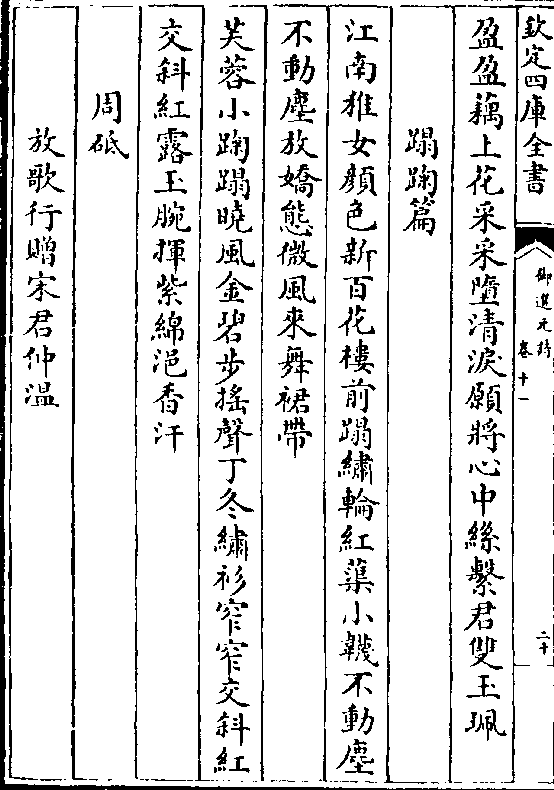 欽定四庫全書
御選元詩
卷十一
二十
盈盈藕上花采采墮清淚願將心中絲繫君雙玉珮
蹋踘篇
江南稚女顏色新百花樓前蹋繡輪紅蕖小韈不動塵
不動塵放嬌態微風來舞裙帶
芙蓉小踘蹋曉風金碧步搖聲丁冬繡衫窄窄交斜紅
交斜紅露玉腕揮紫綿浥香汗
周砥
放歌行贈宋君仲溫